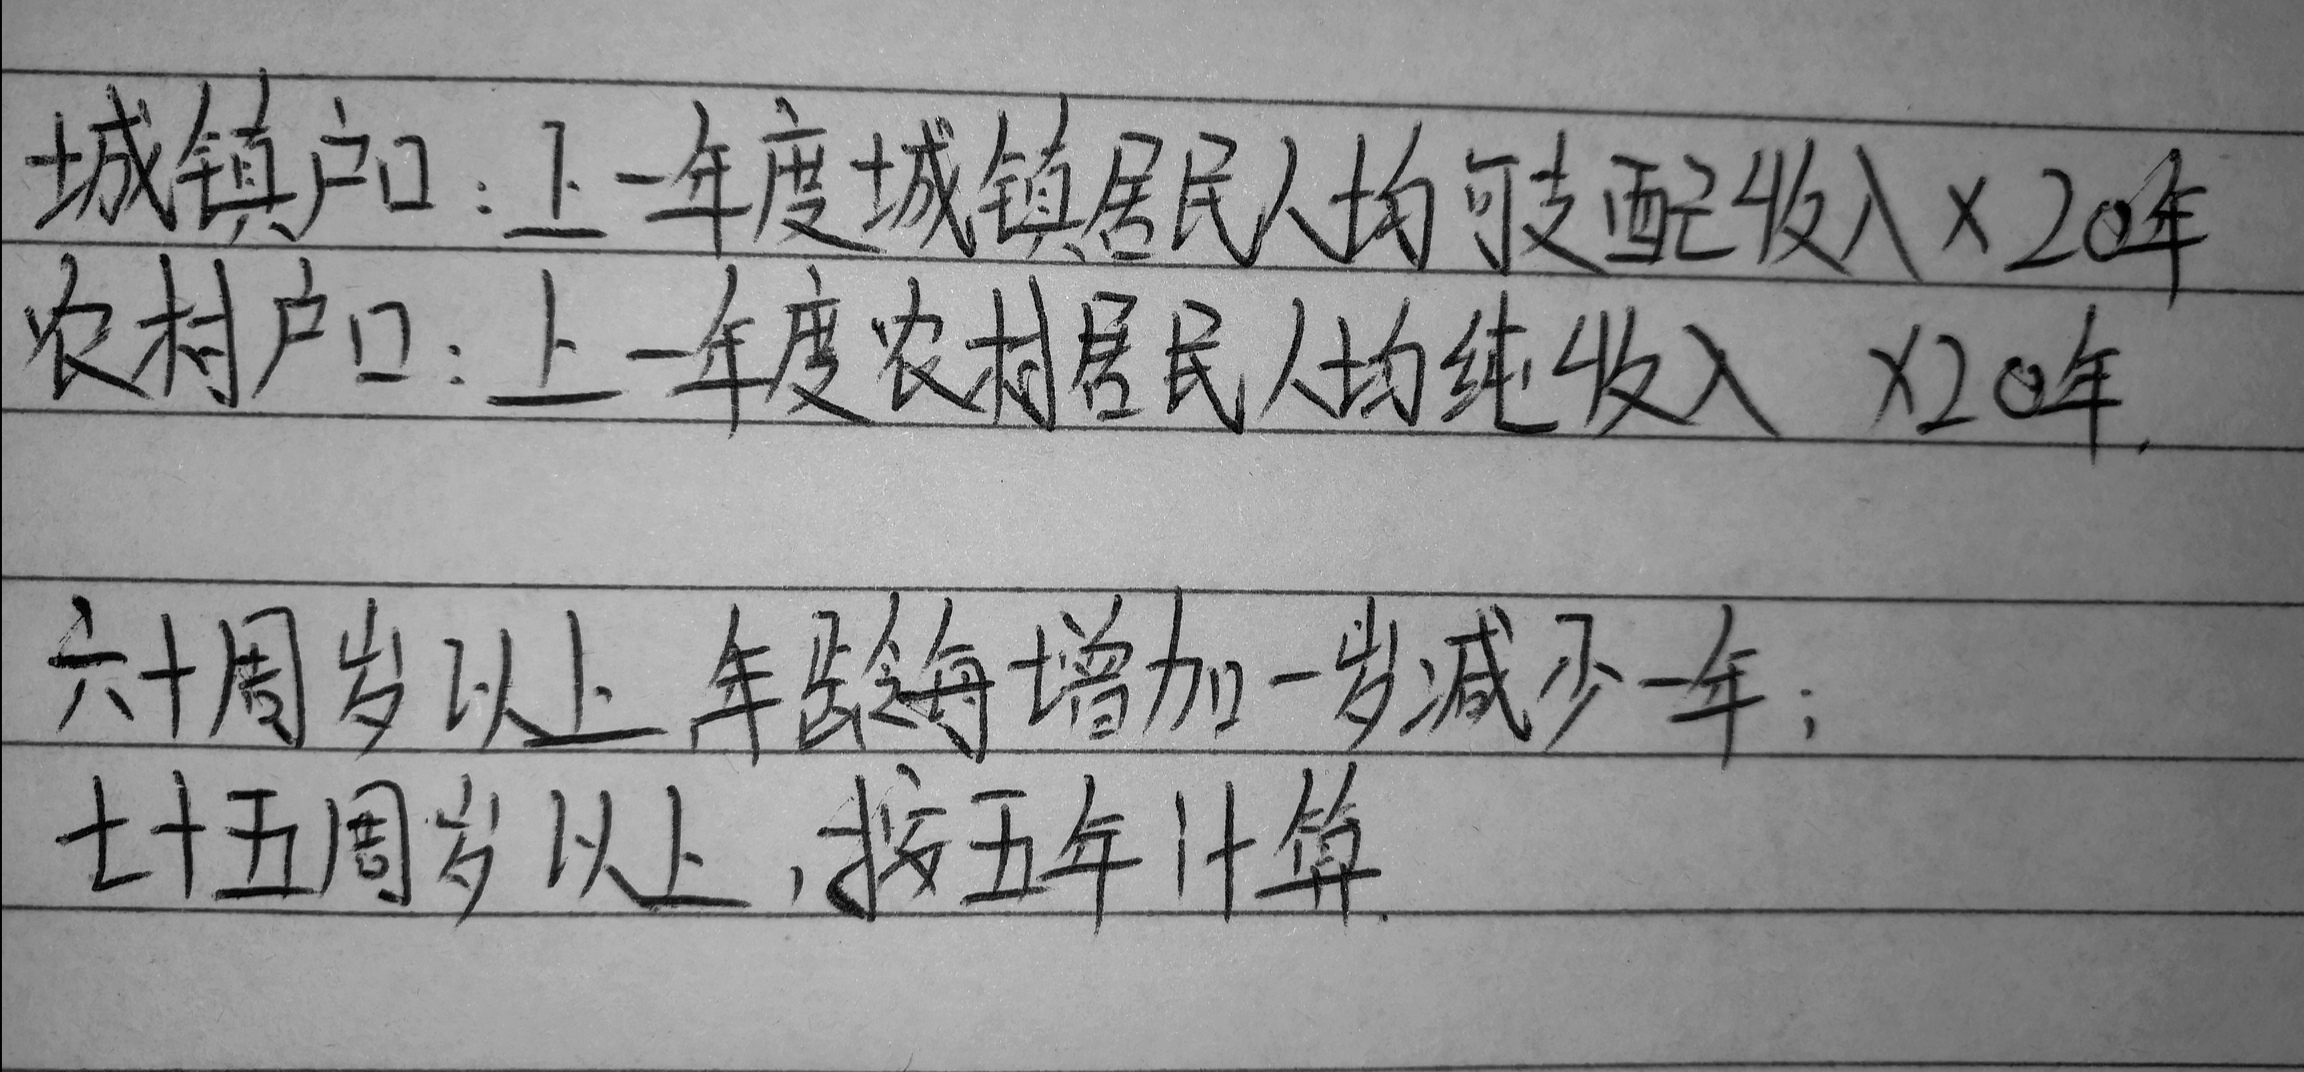 城镇户口:上一年度城镇居民人均可支配收入×20年
农村户口:上一年度农村居民人均纯收入 ×20年.
六十周岁以上年龄每增加一岁减少一年;
七十五周岁以上,按五年计算.